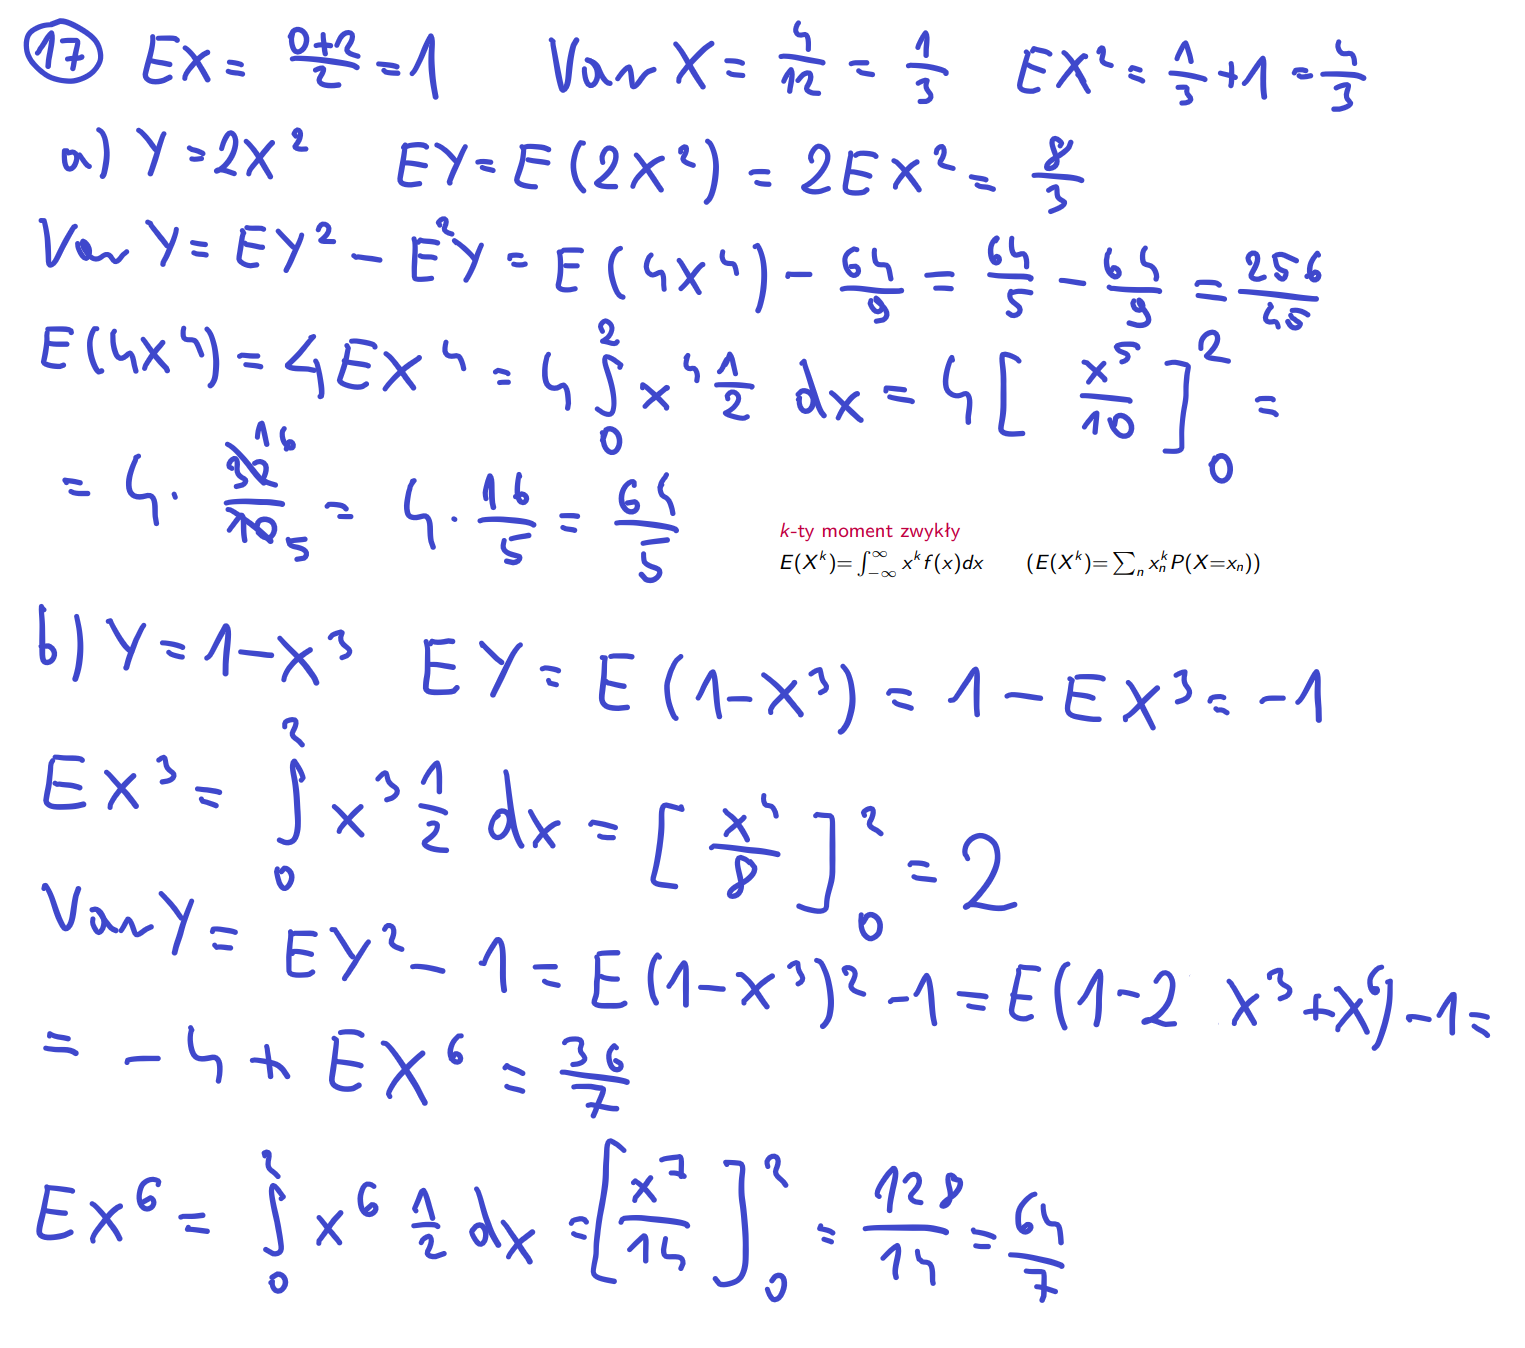 17 EX = (0+2)/2 = 1 Var X = 4/12 = 1/3 EX² = 1/3 + 1 = 4/3
a) Y = 2X² EY = E(2X²) = 2EX² = 8/3
Var Y = EY² − E²Y = E(4X⁴) − 64/9 = 64/5 − 64/9 = 256/45
E(4X⁴) = 4EX⁴ = 4 ∫₀² x⁴ 1/2 dx = 4 [x⁵/10]₀² =
= 4 · 32/10 16/5 = 4 · 16/5 = 64/5
k-ty moment zwykły
E(Xᵏ)=∫₋∞^∞ xᵏf(x)dx (E(Xᵏ)=∑ₙ xₙᵏP(X=xₙ))
b) Y = 1−X³ EY = E(1−X³) = 1 − EX³ = −1
EX³ = ∫₀² x³ 1/2 dx = [x⁴/8]₀² = 2
Var Y = EY² − 1 = E(1−X³)² − 1 = E(1−2 X³+X⁶) − 1 =
= − 4 + EX⁶ = 36/7
EX⁶ = ∫₀² x⁶ 1/2 dx = [x⁷/14]₀² = 128/14 = 64/7